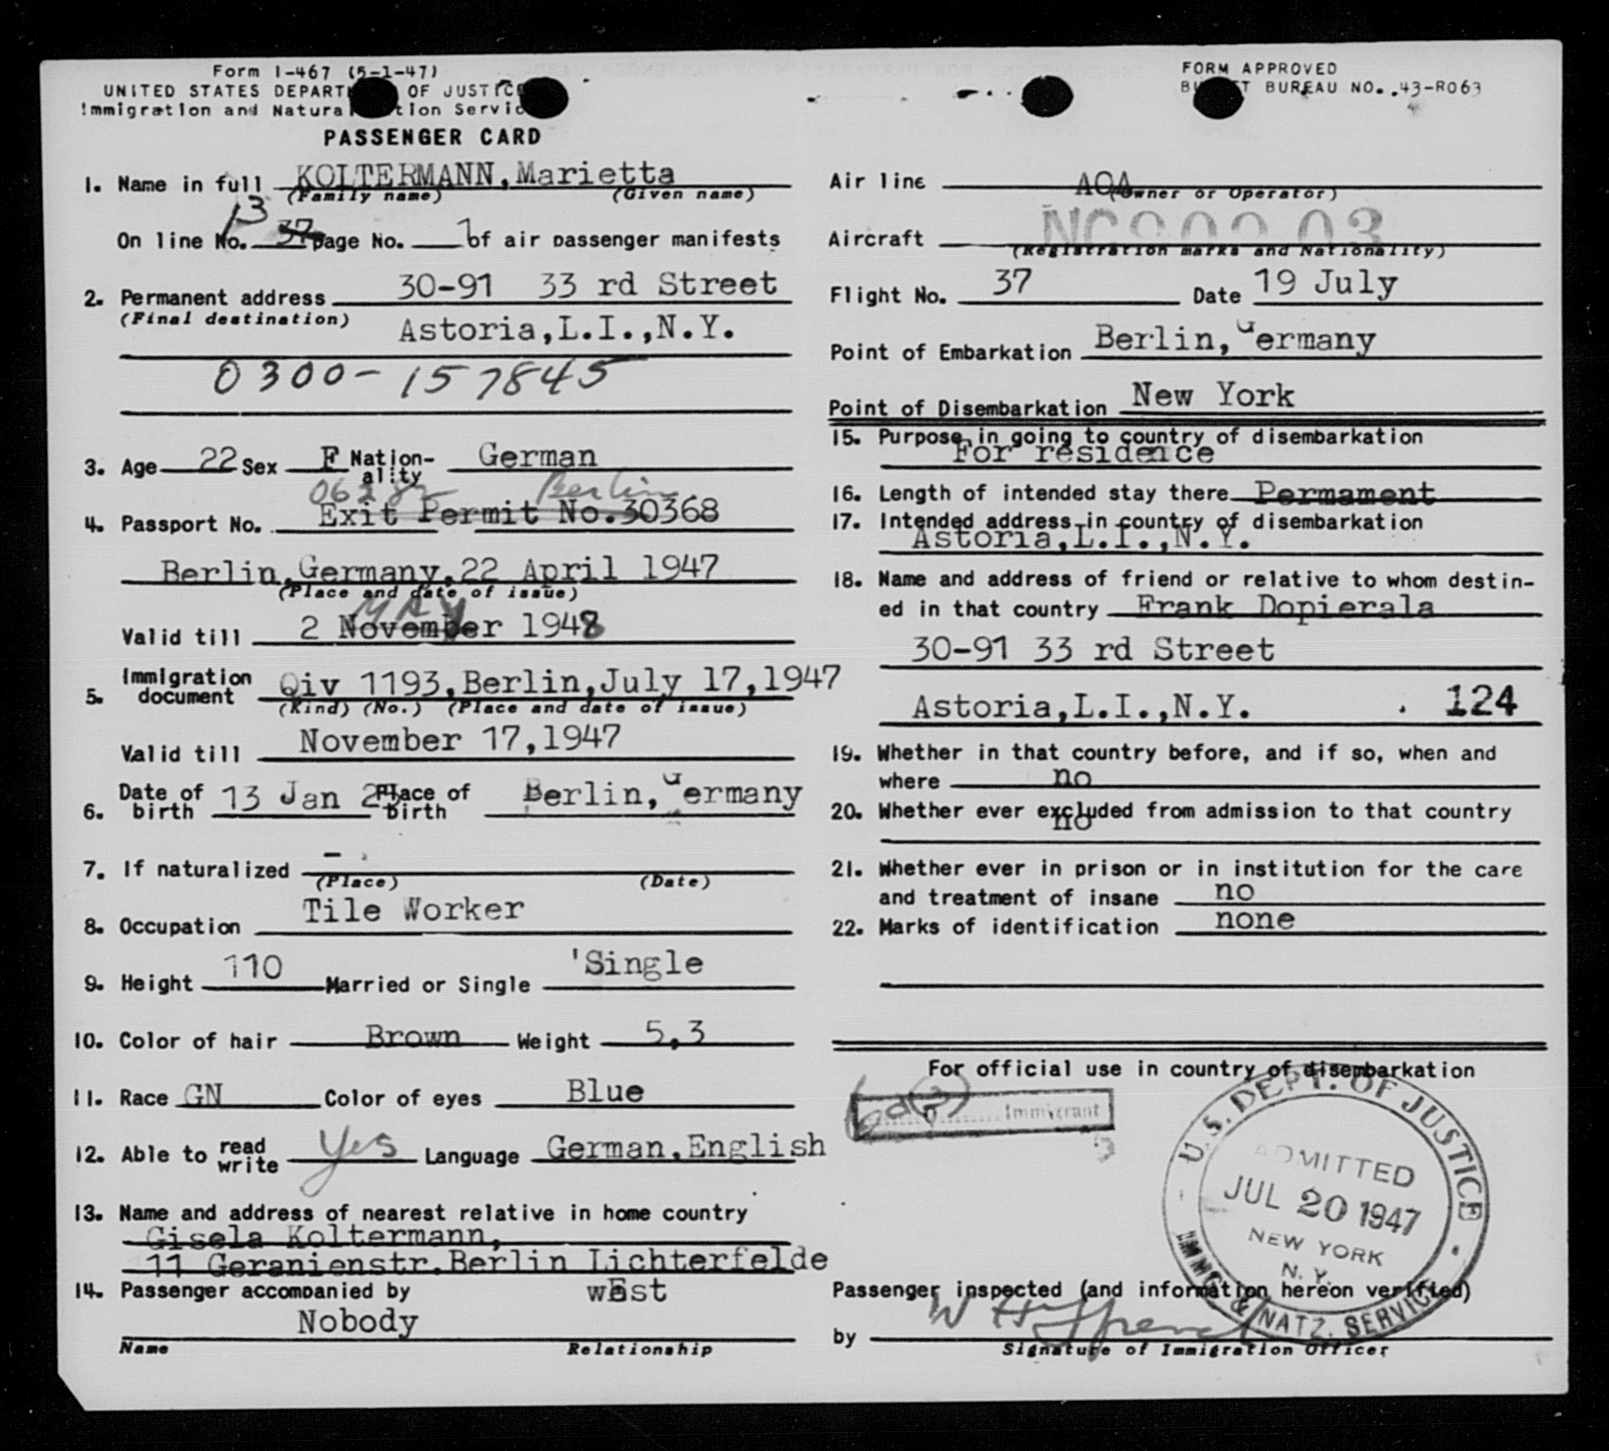 Form I-467 (5-1-47)
UNITED STATES DEPART OF JUSTICE
Immigration and Natura tion Servic
PASSENGER CARD
1. Name in full KOLTERMANN, Marietta
(Family name) (Given name)
13
On line No. 37 page No. 1 of air passenger manifests
2. Permanent address 30-91 33 rd Street
(Final destination) Astoria,L.I.,N.Y.
0300-157845
3. Age 22 Sex F Nation-ality German
Berlin
4. Passport No. Exit Permit No.30368
Berlin,Germany,22 April 1947
(Place and date of issue)
MAY
Valid till 2 November 1948
5. Immigration document Qiv 1193,Berlin,July 17,1947
(Kind) (No.) (Place and date of issue)
Valid till November 17,1947
6. Date of birth 13 Jan 2 Place of birth Berlin,Germany
7. If naturalized -
(Place) (Date)
8. Occupation Tile Worker
9. Height 110 Married or Single 'Single
10. Color of hair Brown Weight 5,3
11. Race GN Color of eyes Blue
12. Able to read write Yes Language German,English
13. Name and address of nearest relative in home country
Gisela Koltermann,
11 Geranienstr.Berlin Lichterfelde
West
14. Passenger accompanied by
Nobody
Name Relationship
FORM APPROVED
B T BUREAU NO. 43-R063
Air line AOA
(Owner or Operator)
Aircraft
(Registration marks and Nationality)
Flight No. 37 Date 19 July
Point of Embarkation Berlin,Germany
Point of Disembarkation New York
15. Purpose in going to country of disembarkation
For residence
16. Length of intended stay there Permament
17. Intended address in country of disembarkation
Astoria,L.I.,N.Y.
18. Name and address of friend or relative to whom destin-
ed in that country Frank Dopierala
30-91 33 rd Street
Astoria,L.I.,N.Y. . 124
19. Whether in that country before, and if so, when and
where no
20. Whether ever excluded from admission to that country
no
21. Whether ever in prison or in institution for the care
and treatment of insane no
22. Marks of identification none
For official use in country of disembarkation
Immigrant
U.S. DEPT. OF JUSTICE
ADMITTED
JUL 20 1947
NEW YORK
N. Y.
IMMG. & NATZ. SERVICE
Passenger inspected (and information hereon verified)
by
Signature of Immigration Officer